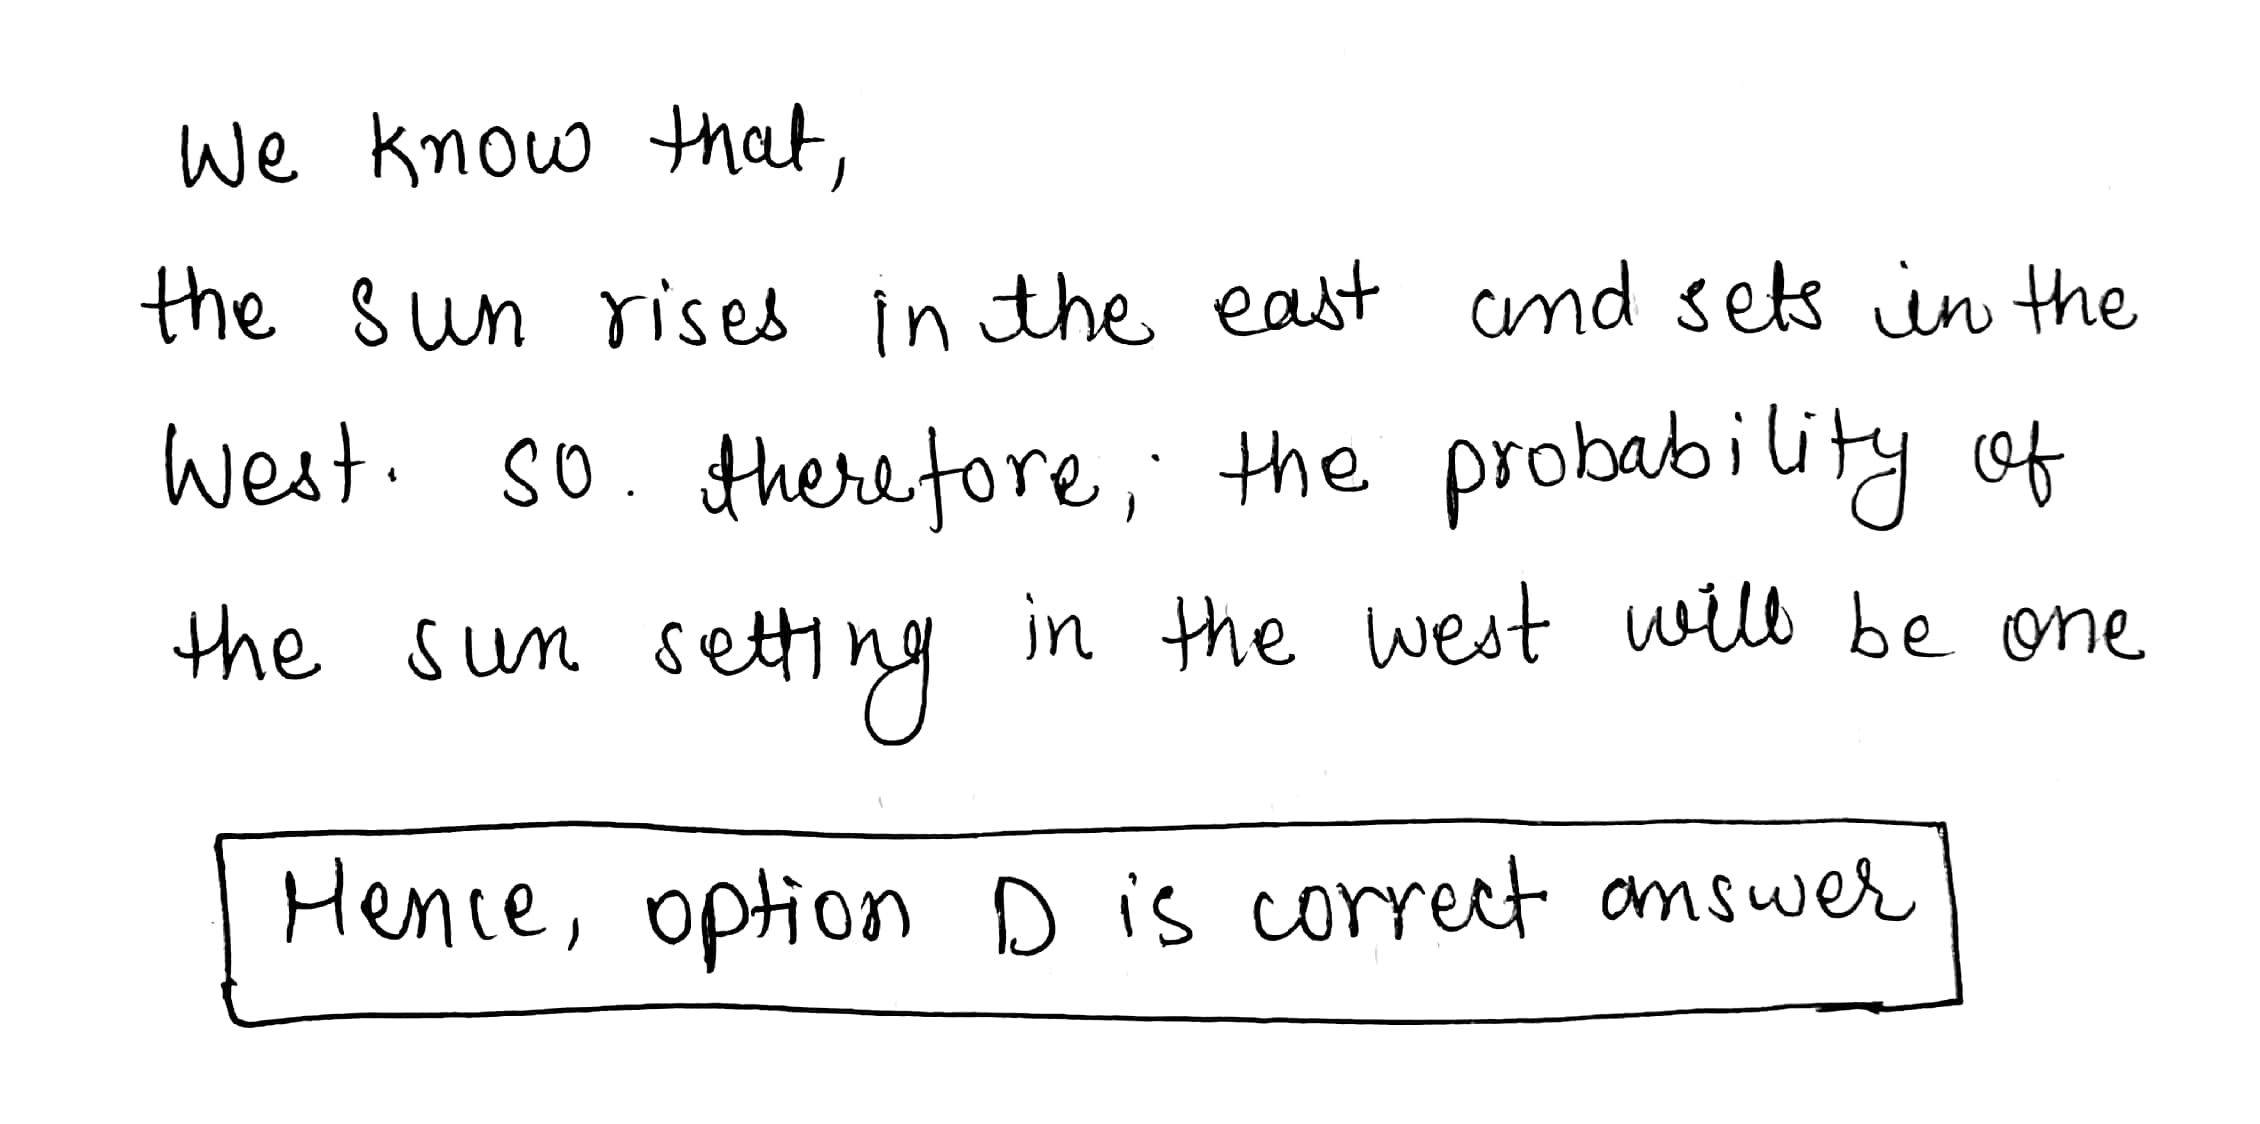 We know that,
the sun rises in the east and sets in the
West. so. therefore, the probability of
the sun setting in the west will be one
Hence, option D is correct answer